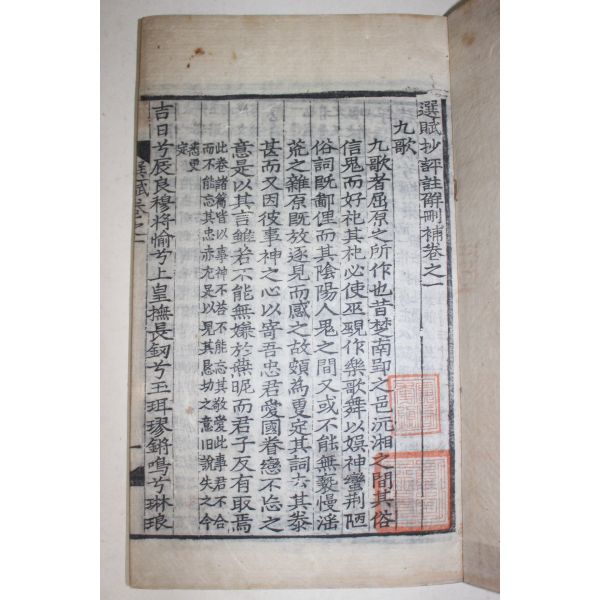 選賦抄評註解刪補卷之一
九歌
九歌者屈原之所作也昔楚南郢之邑沅湘之間其俗
信鬼而好祀其祀必使巫覡作樂歌舞以娛神蠻荊陋
俗詞既鄙俚而其陰陽人鬼之間又或不能無褻慢淫
荒之雜原既放逐見而感之故頗為更定其詞去其泰
甚而又因彼事神之心以寄吾忠君愛國眷戀不忘之
意是以其言雖若不能無嫌於燕昵而君子反有取焉
此卷諸篇皆以事神不答而不能忘其敬愛比事君不合
而不能忘其忠赤尤足以見其懇切之意旧說失之今
悉更
定
吉日兮辰良穆將愉兮上皇撫長劒兮玉珥璆鏘鳴兮琳琅
選賦卷之一